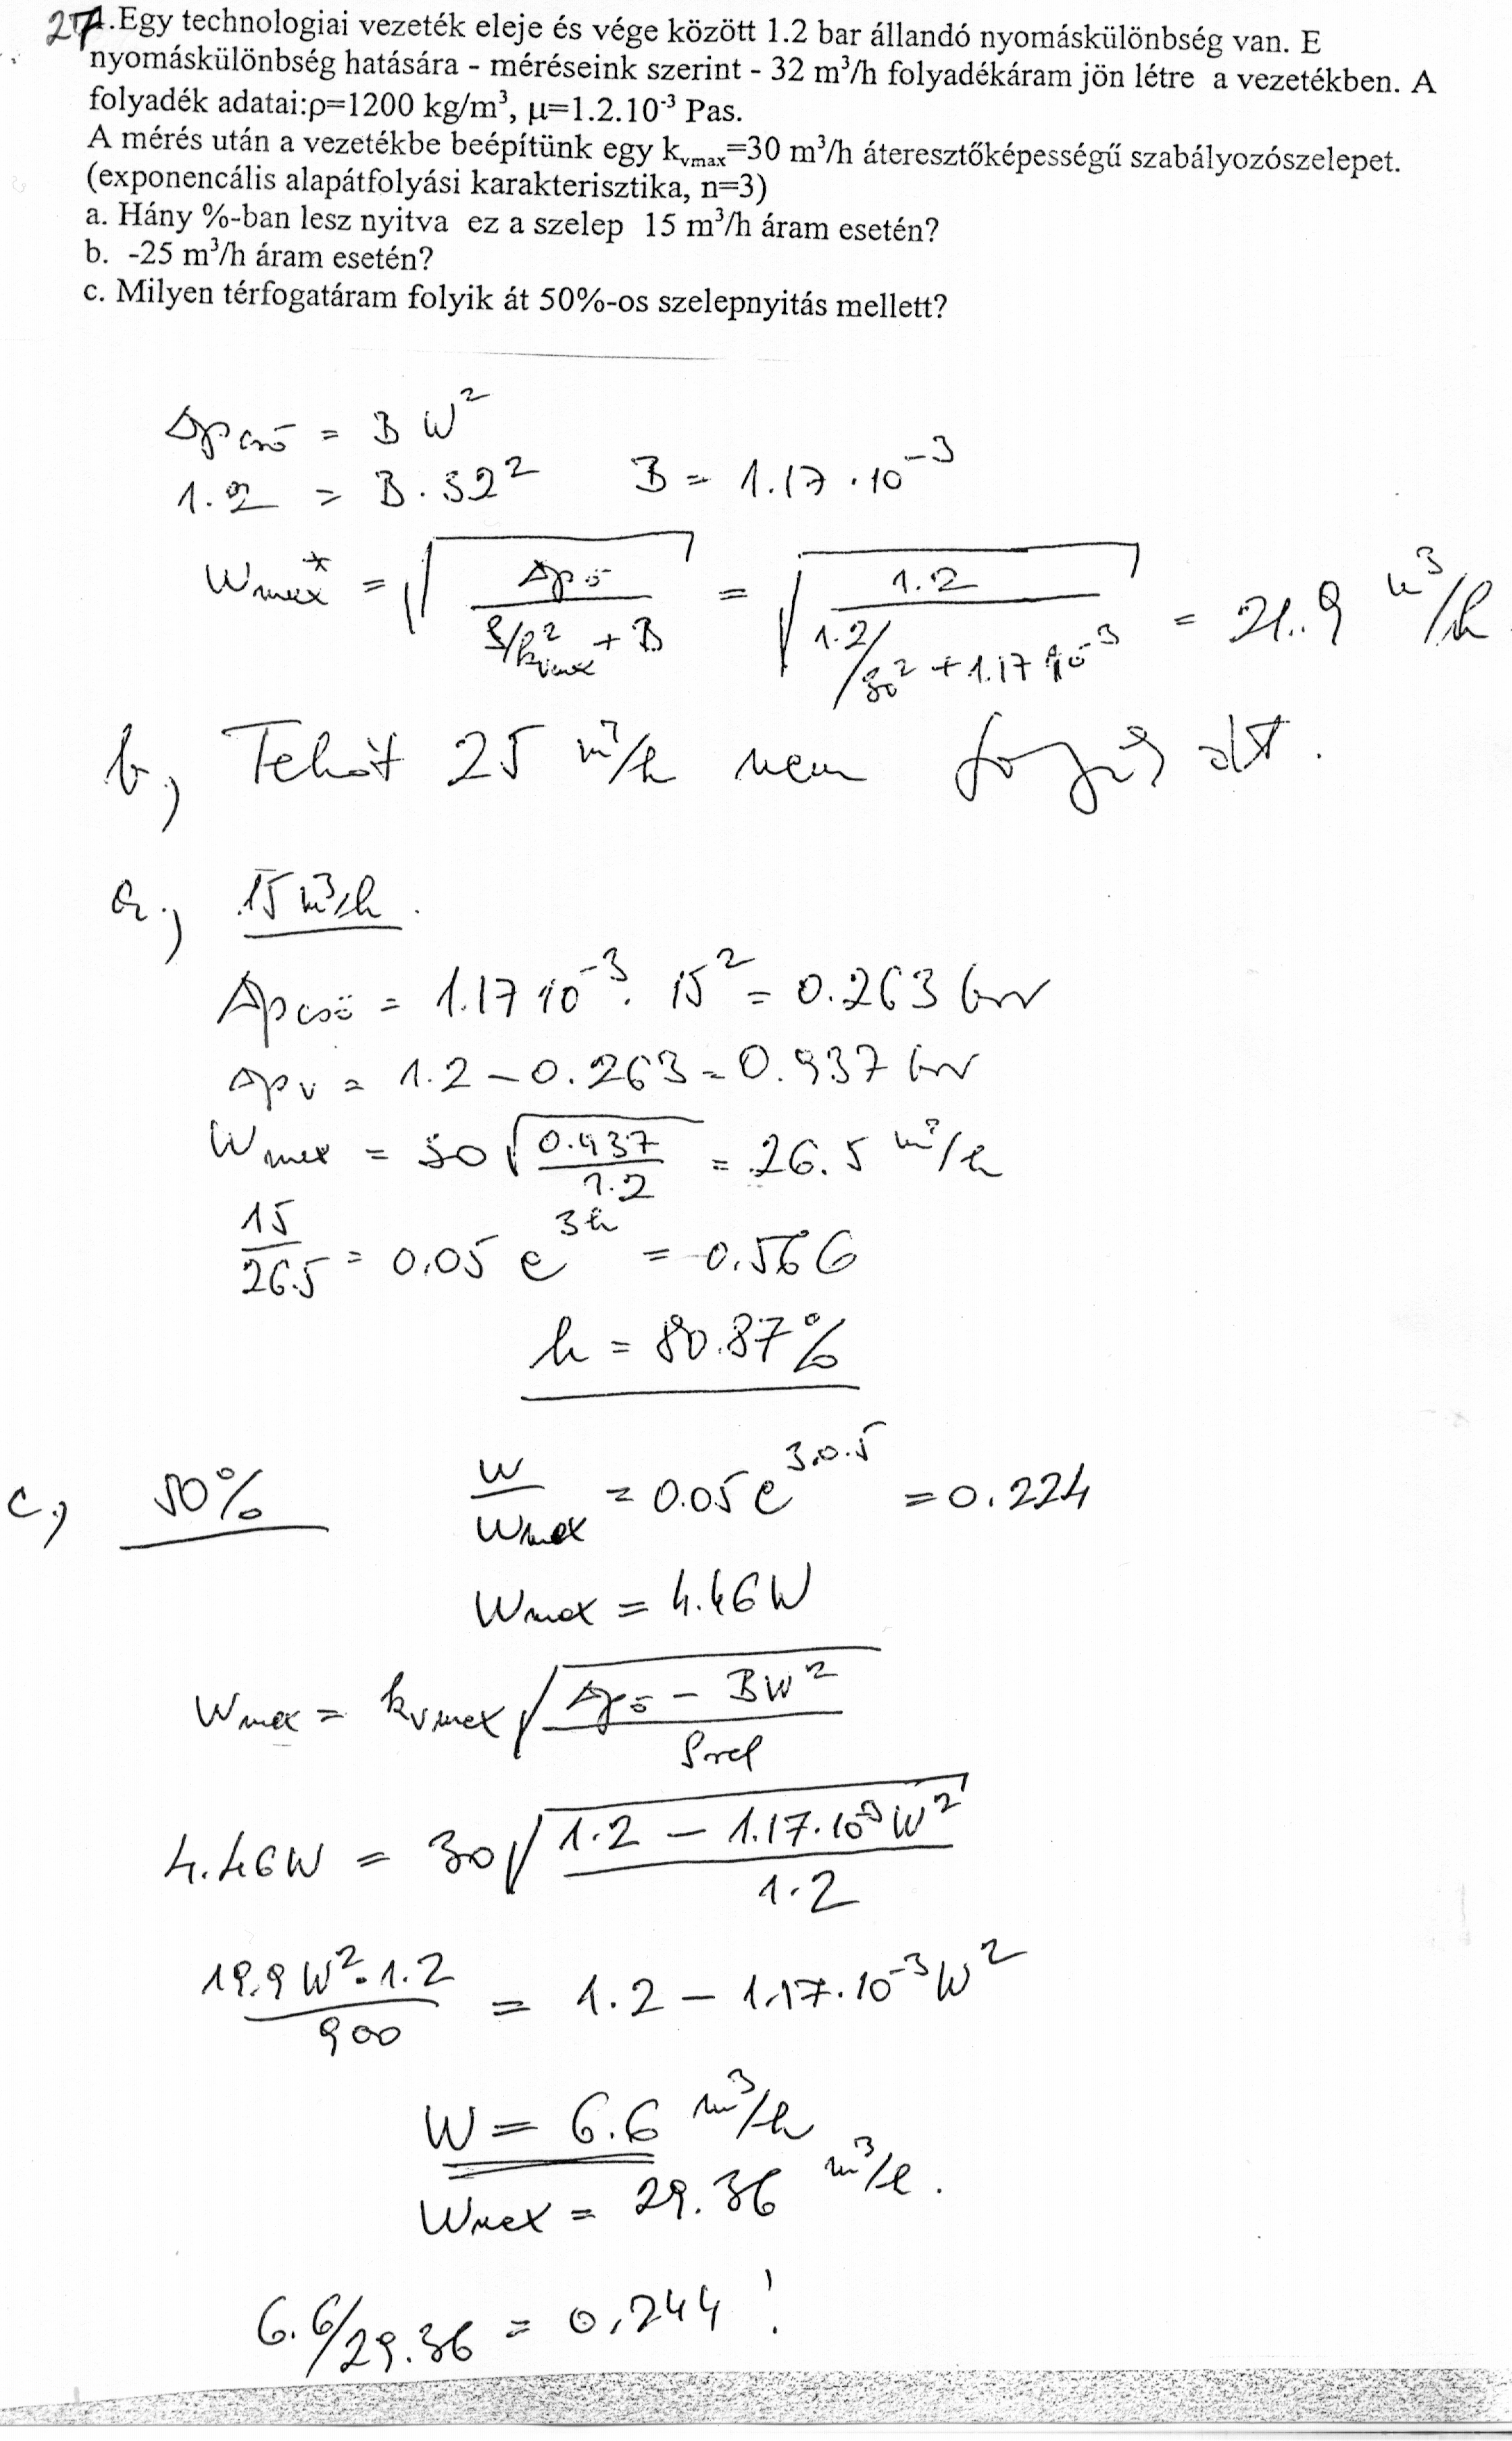 27.Egy technologiai vezeték eleje és vége között 1.2 bar állandó nyomáskülönbség van. E
nyomáskülönbség hatására - méréseink szerint - 32 m³/h folyadékáram jön létre a vezetékben. A
folyadék adatai:ρ=1200 kg/m³, μ=1.2.10⁻³ Pas.
A mérés után a vezetékbe beépítünk egy kvmax=30 m³/h áteresztőképességű szabályozószelepet.
(exponenciális alapátfolyási karakterisztika, n=3)
a. Hány %-ban lesz nyitva ez a szelep 15 m³/h áram esetén?
b. -25 m³/h áram esetén?
c. Milyen térfogatáram folyik át 50%-os szelepnyitás mellett?
Δp cső = B W²
1.2 = B · 32² B = 1.17 · 10⁻³
Wmax* = √(Δpö / (ρ/kvmax² + B)) = √(1.2 / (1.2/30² + 1.17 10⁻³)) = 21.9 m³/h
b, Tehát 25 m³/h nem folyik át.
a., 15 m³/h.
Δpcső = 1.17 10⁻³ · 15² = 0.263 bar
Δpv = 1.2 - 0.263 = 0.937 bar
Wmax = 30 √(0.937 / 1.2) = 26.5 m³/h
15/26.5 = 0.05 e^3h = 0.566
h = 80.87%
c., 50% W/Wmax = 0.05 e^3.0.5 = 0.224
Wmax = 4.46 W
Wmax = kvmax √((Δpö - BW²) / ρrel)
4.46W = 30 √((1.2 - 1.17·10⁻³ W²) / 1.2)
19.9 W² · 1.2 / 900 = 1.2 - 1.17·10⁻³ W²
W = 6.6 m³/h
Wmax = 29.36 m³/h.
6.6/29.36 = 0.244 !